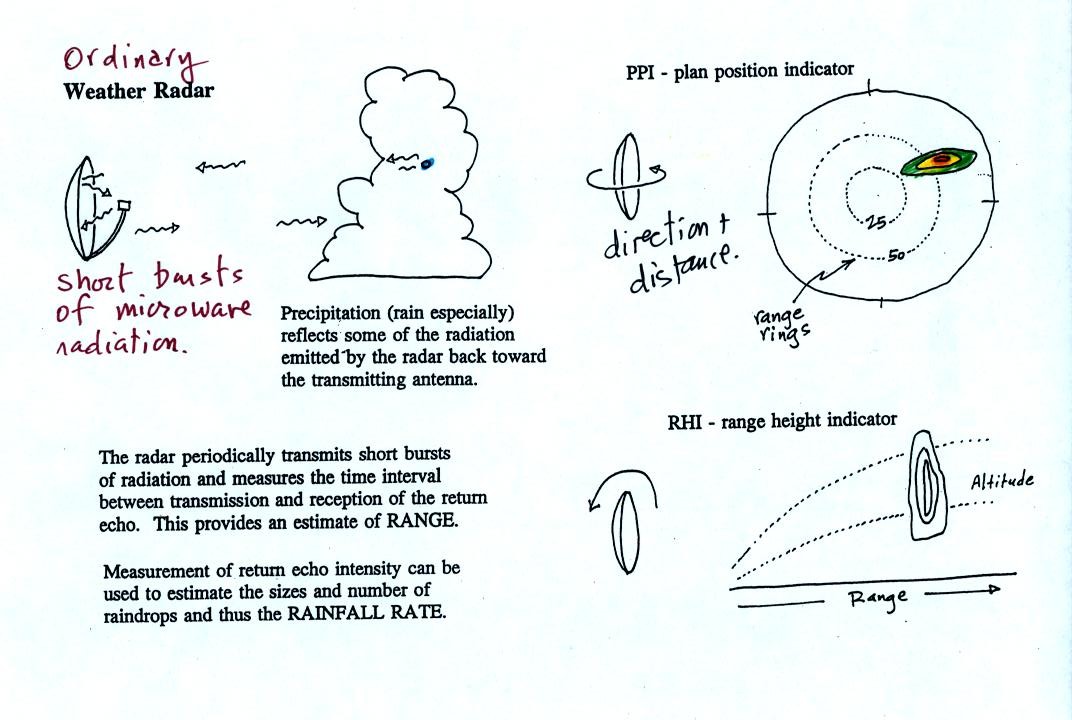 Ordinary
Weather Radar
short bursts
of microware
radiation.
Precipitation (rain especially)
reflects some of the radiation
emitted by the radar back toward
the transmitting antenna.
The radar periodically transmits short bursts
of radiation and measures the time interval
between transmission and reception of the return
echo. This provides an estimate of RANGE.
Measurement of return echo intensity can be
used to estimate the sizes and number of
raindrops and thus the RAINFALL RATE.
PPI - plan position indicator
direction +
distance.
25
50
range
rings
RHI - range height indicator
Altitude
Range